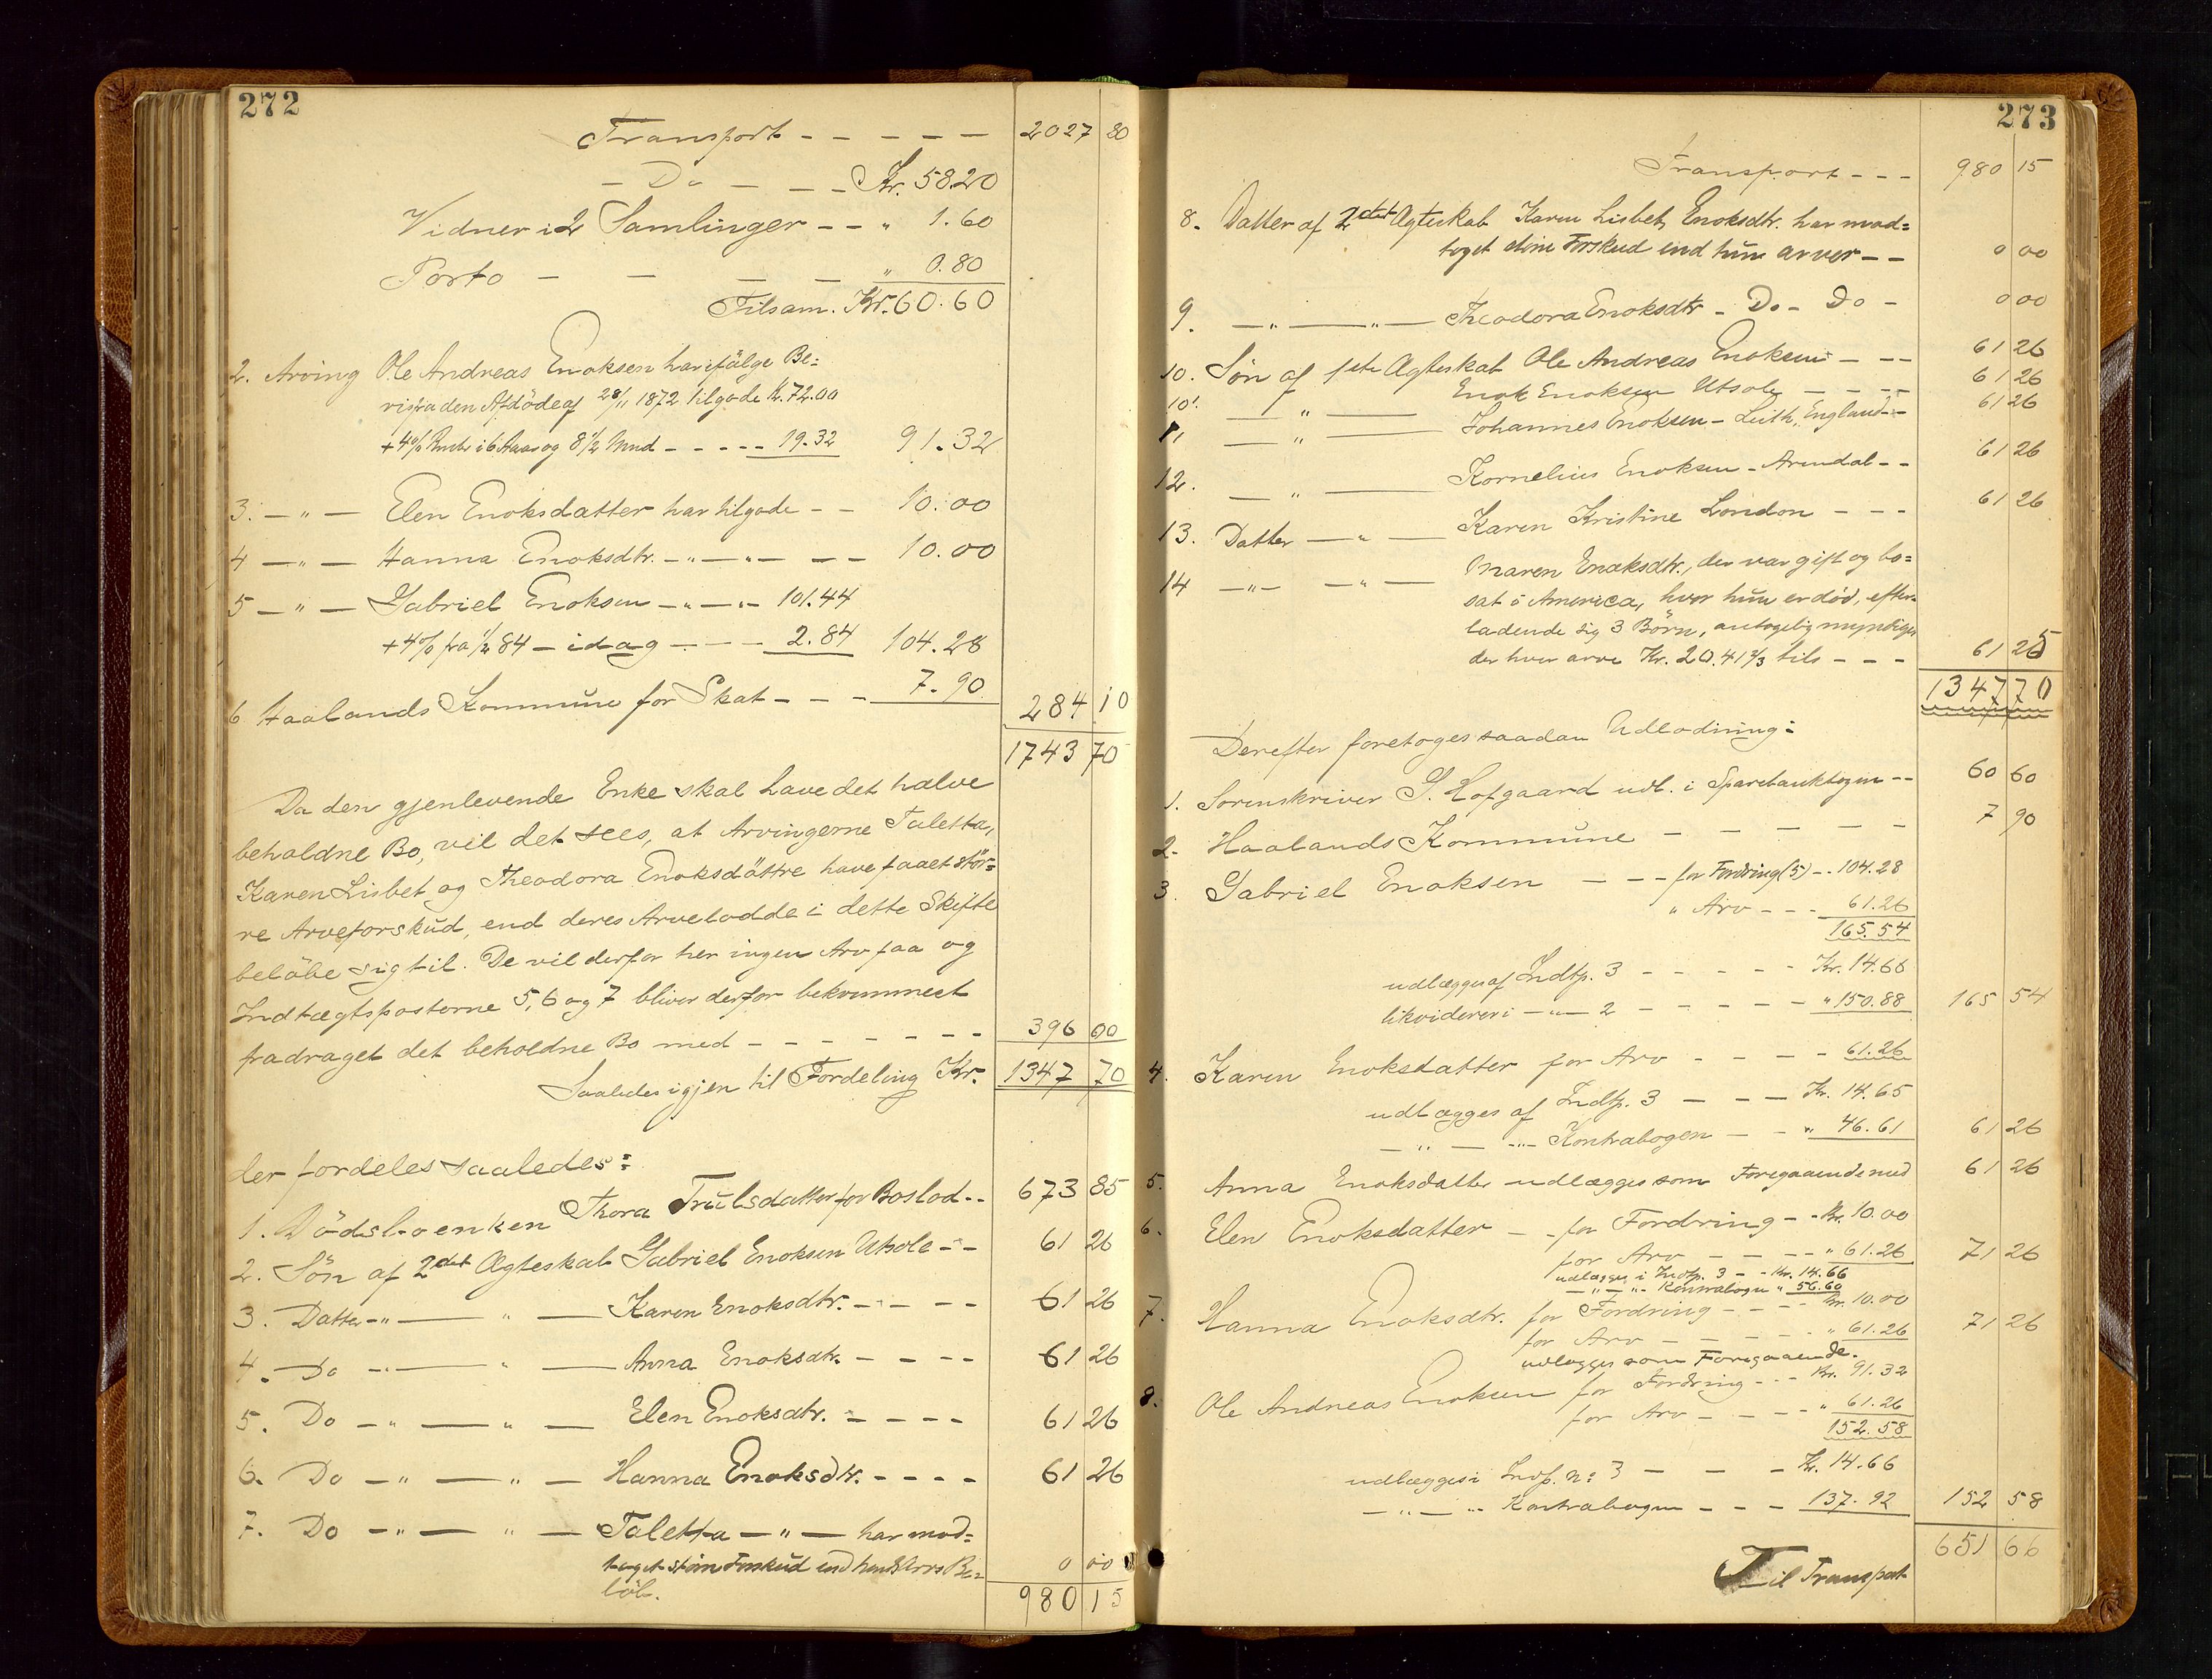 272
Transport - - - - - 2027 80
- Do - - - Kr. 58.20
Vidner i 2 Samlinger - - " 1.60
Porto - - - - " 0.80
Tilsam. Kr. 60.60
2. Arving Ole Andreas Enoksen har ifälge Be=
vis fra den Afdöde af 28/11 1872 tilgode Kr. 72.00
+ 4% Rente i 6 Aar og 8 1/2 Mnd - - - - - 19.32 91.32
3. - " - Elen Enoksdatter har tilgode - - 10.00
4 - " - Hanna Enoksdtr. - " - " - - - 10.00
5 - " - Gabriel Enoksen - " - " - 101.44
+ 4% fra 1/2 84 - idag - - - 2.84 104.28
6 Haalands Kommune for Skat - - - 7.90
284 10
1743 70
Da den gjenlevende Enke skal have det halve
beholdne Bo, vil det sees, at Arvingerne Taletta,
Karen Lisbet og Theodora Enoksdöttre have faaet stör=
re Arveforskud, end deres Arvelodde i dette Skifte
belöbe sig til. De vil derfor her ingen Arv faa og
Indtægtsposterne 5, 6 og 7 bliver derfor bekvemmest
fradraget det beholdne Bo med - - - - - - - 396 00
Saaledes igjen til Fordeling Kr. 1347 70
der fordeles saaledes:
1. Dödsboenken Thora Trulsdatter for Boslod - - 673 85
2. Sön af 2det Ægteskab Gabriel Enoksen Utsole - - 61 26
3. Datter - " - " - Karen Enoksdtr. - - - - 61 26
4. Do - " - " - Anna Enoksdtr. - - - - 61 26
5. Do - " - " - Elen Enoksdtr. - - - - 61 26
6. Do - " - " - Hanna Enoksdtr. - - - - 61 26
7. Do - " - " - Taletta - " - har mod=
taget större Forskud end hendes Arvs Be=
löb. 0 00
980 15
273
Transport - - - 980 15
8. Datter af 2det Ægteskab Karen Lisbet Enoksdtr. har mod=
taget större Forskud end hun arver - - 0 00
9. - " - " - Theodora Enoksdtr - Do - Do - 0 00
10. Sön af 1ste Ægteskab Ole Andreas Enoksen - - - 61 26
10'. - " - Enok Enoksen Utsole - - - - 61 26
11 - " - Johannes Enoksen - Leith, England - - 61 26
12. - " - Kornelius Enoksen - Arendal - - 61 26
13. Datter - " - Karen Kristine London - - - 61 26
14 - " - - " - Maren Enoksdtr., der var gift og bo=
sat i America, hvor hun er död, efter=
ladende sig 3 Börn, antagelig myndige,
der hver arve Kr. 20.41 2/3 tils - - - 61 25
1347 70
Derefter foretoges saadan Udlodning:
1. Sorenskriver S. Hofgaard udl. i Sparebankbogen - - 60 60
2. Haalands Kommune - - - - - 7 90
3. Gabriel Enoksen - - - for Fordring (5) - - 104.28
" Arv - - - 61.26
165.54
udlægges af Indtp. 3 - - - - - Kr. 14.66
likviderer i - " - 2 - - - - - " 150.88 165 54
4. Karen Enoksdatter for Arv - - - - - 61.26
udlægges af Indtp. 3 - - - Kr. 14.65
- " - " - Kontrabogen - - " 46.61 61 26
5. Anna Enoksdatter udlægges som Foregaaende med 61 26
6. Elen Enoksdatter - - for Fordring - - Kr. 10.00
for Arv - - - - " 61.26 71 26
udlægges i Indtp. 3 - - Kr. 14.66
- " - " - Kontrabogen " 56.60
7. Hanna Enoksdtr. for Fordring - - - - Kr. 10.00
for Arv - - - - - " 61.26 71 26
udlægges som Foregaaende.
8. Ole Andreas Enoksen for Fordring - - - Kr. 91.32
for Arv - - - - " 61.26
152.58
udlægges i Indp. No 3 - - - Kr. 14.66
- " - " - Kontrabogen - - - 137.92 152 58
651 66
Til Transport